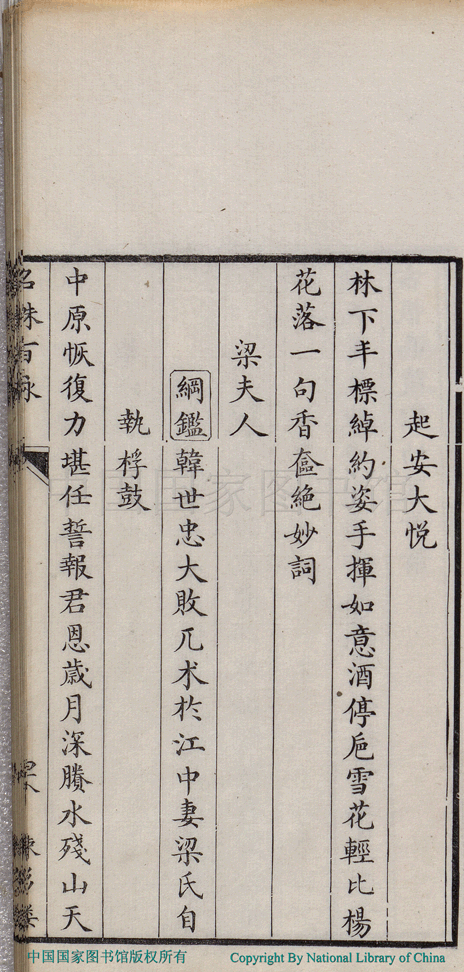 起安大悅
林下丰標綽約姿手揮如意酒停巵雪花輕比楊
花落一句香奩絶妙詞
梁夫人
綱鑑韓世忠大敗兀术於江中妻梁氏自
執桴鼓
中原恢復力堪任誓報君恩歳月深賸水殘山天
名姝百咏
中国国家图书馆
中国国家图书馆版权所有
Copyright By National Library of China